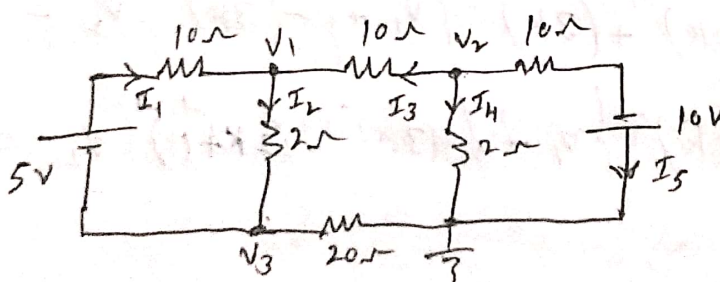 10Ω V1 10Ω V2 10Ω
I1 I2 I3 I4
2Ω 2Ω 10V
5V I5
V3 20Ω